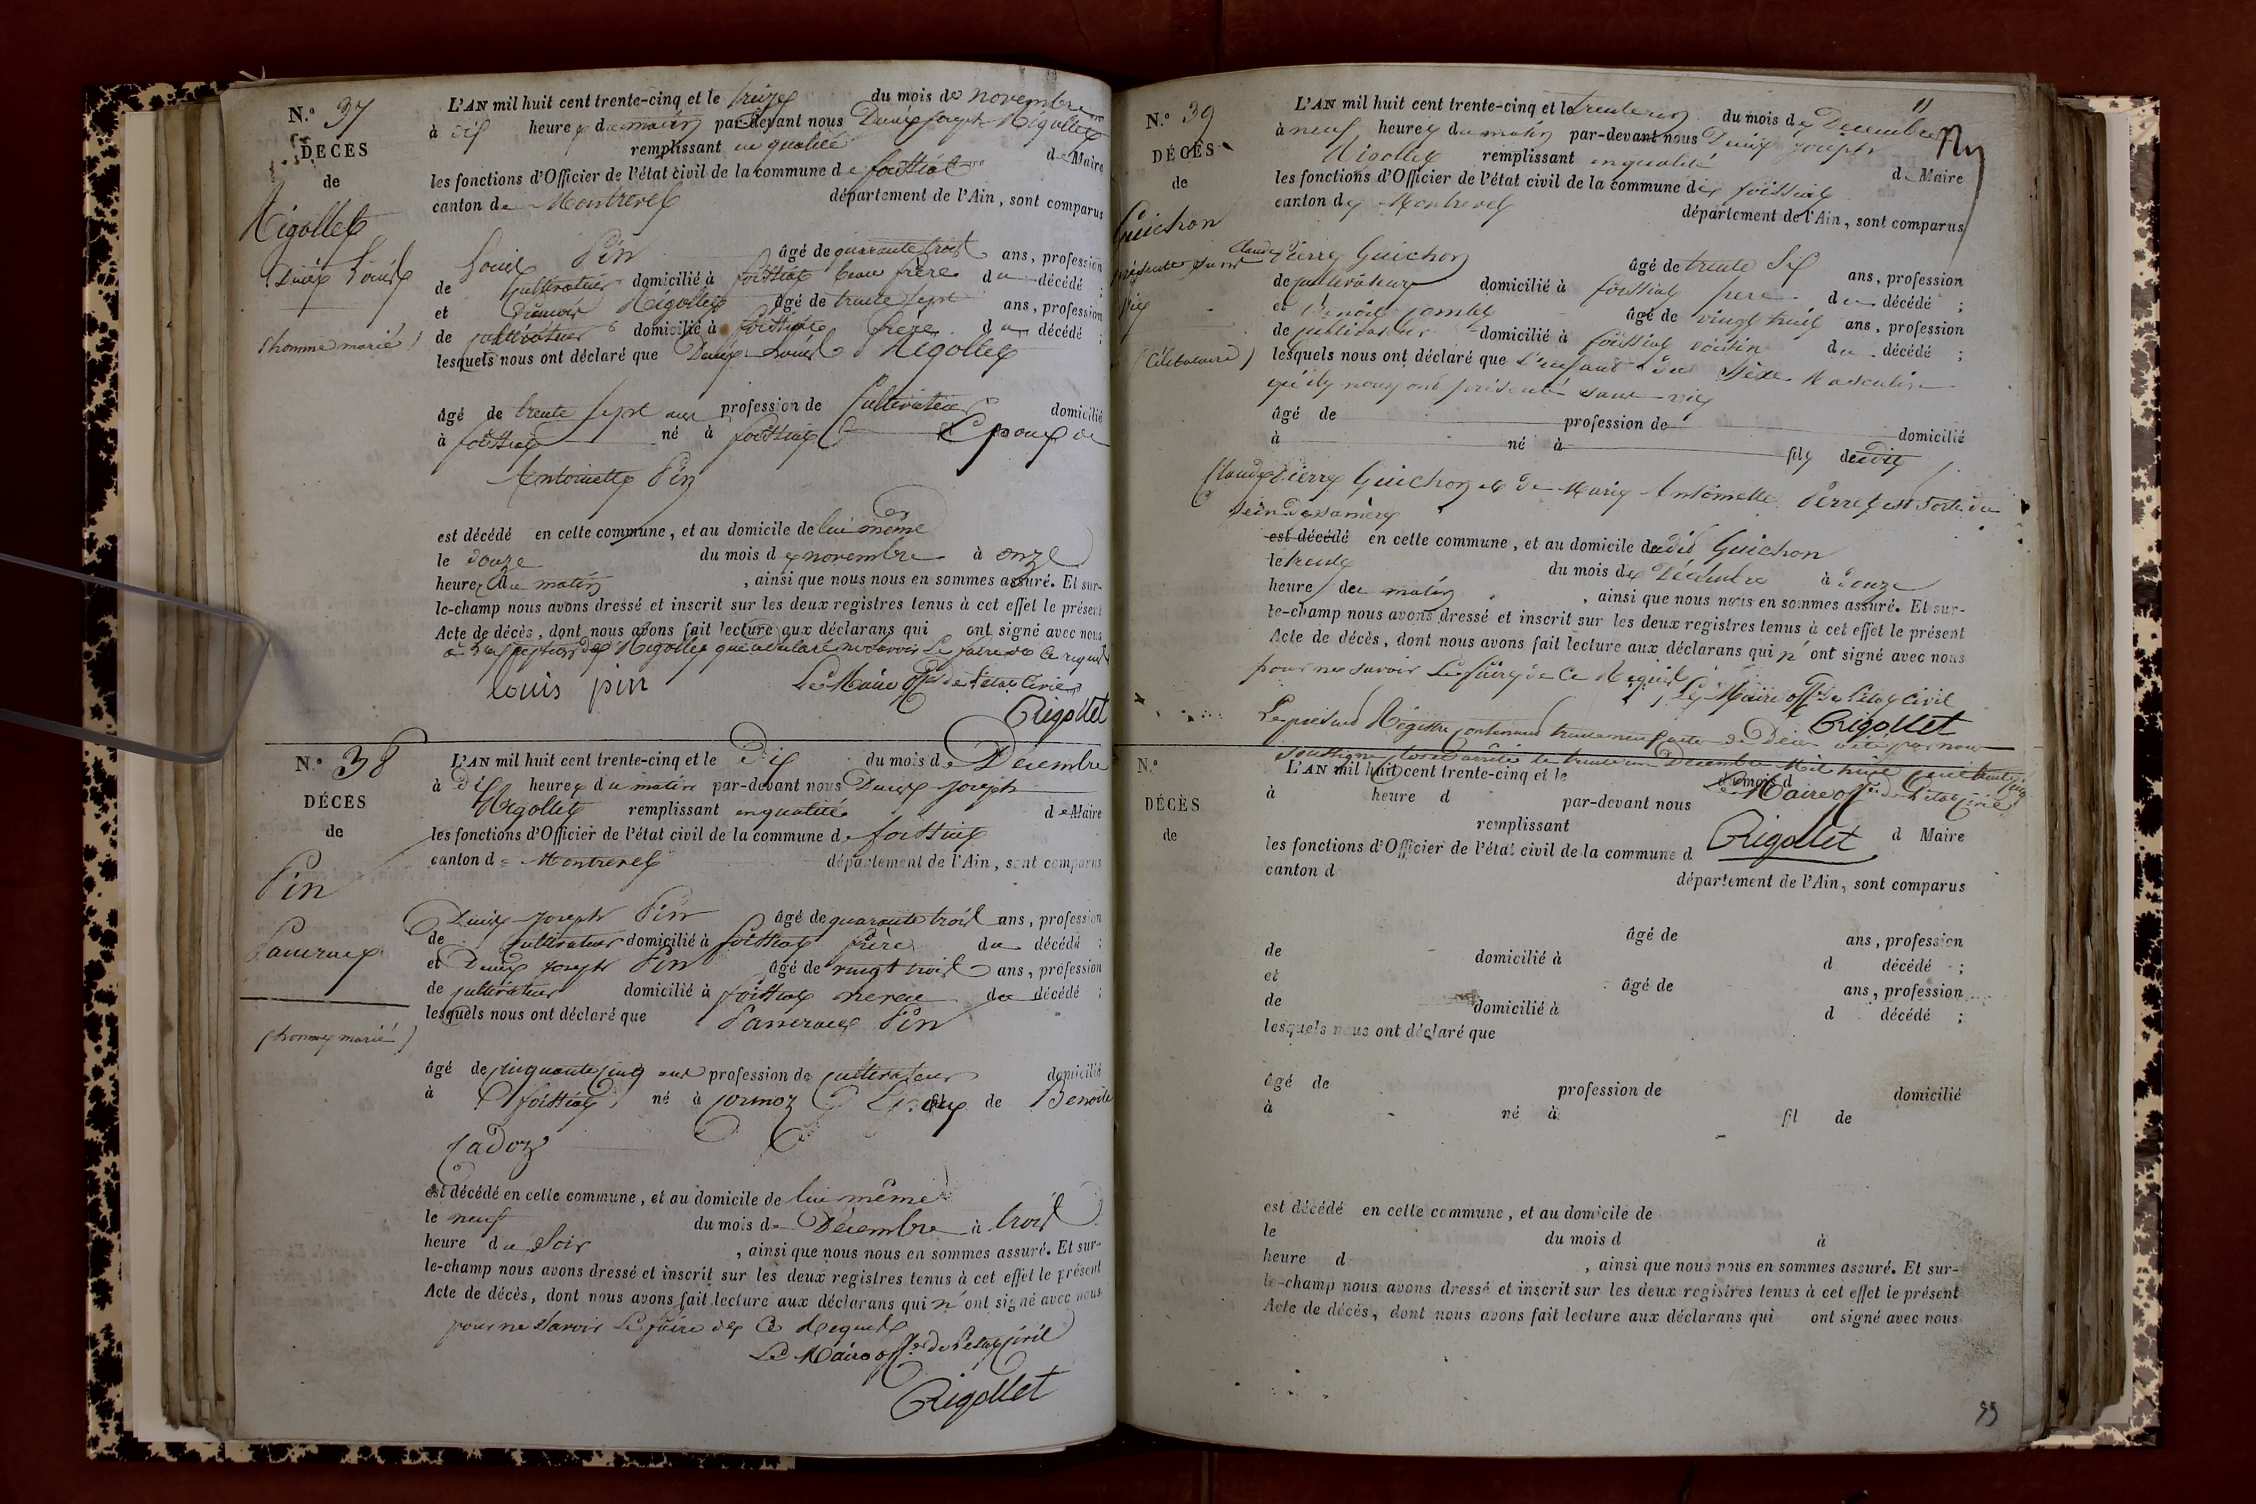 N.° 37
DÉCÈS
de
Rigollet
Denis Louis
(homme marié)
L'AN mil huit cent trente-cinq et le treize du mois de novembre
à dix heures du matin par-devant nous Denis Joseph Rigollet
remplissant en qualité de Maire
les fonctions d'Officier de l'état civil de la commune de foissiat
canton de Montrevel département de l'Ain, sont comparus
Louis Pin âgé de quarante trois ans, profession
de Cultivateur domicilié à foissiat beau frère du décédé ;
et Rigollet âgé de trente sept ans, profession
de cultivateur domicilié à foissiat frère du décédé ;
lesquels nous ont déclaré que Denis Louis Rigollet
âgé de trente sept ans profession de Cultivateur domicilié
à foissiat né à foissiat Epoux de
Antoinette Pin
est décédé en cette commune, et au domicile de lui même
le douze du mois de novembre à onze
heures du matin, ainsi que nous nous en sommes assuré. Et sur-
le-champ nous avons dressé et inscrit sur les deux registres tenus à cet effet le présent
Acte de décès, dont nous avons fait lecture aux déclarans qui ont signé avec nous
Rigollet qui a declaré ne savoir le faire de ce requis
louis pin Le Maire off de l'état Civil
Rigollet
N.° 38
DÉCÈS
de
Pin
Pancrace
(homme marié)
L'AN mil huit cent trente-cinq et le dix du mois de Décembre
à dix heures du matin par-devant nous Denis Joseph
Rigollet remplissant en qualité de Maire
les fonctions d'Officier de l'état civil de la commune de foissiat
canton de Montrevel département de l'Ain, sont comparus
Denis Joseph Pin âgé de quarante trois ans, profession
de Cultivateur domicilié à foissiat frère du décédé ;
et Denis Joseph Pin âgé de vingt trois ans, profession
de cultivateur domicilié à foissiat neveu du décédé ;
lesquels nous ont déclaré que Pancrace Pin
âgé de cinquante cinq ans profession de cultivateur domicilié
à foissiat né à Cormoz Epoux de Benoite
Cadoz
est décédé en cette commune, et au domicile de lui même
le neuf du mois de Décembre à trois
heure du Soir, ainsi que nous nous en sommes assuré. Et sur-
le-champ nous avons dressé et inscrit sur les deux registres tenus à cet effet le présent
Acte de décès, dont nous avons fait lecture aux déclarans qui n'ont signé avec nous
pour ne savoir le faire de ce Requis
Le Maire off de l'état civil
Rigollet
11
N.° 39
DÉCÈS
de
Guichon
présenté sans
vie
(Célibataire)
L'AN mil huit cent trente-cinq et le trente un du mois de Décembre
à neuf heures du matin par-devant nous Denis Joseph
Rigollet remplissant en qualité de Maire
les fonctions d'Officier de l'état civil de la commune de foissiat
canton de Montrevel département de l'Ain, sont comparus
Claude Pierre Guichon âgé de trente six ans, profession
de cultivateur domicilié à foissiat père du décédé ;
et Benoit âgé de vingt huit ans, profession
de cultivateur domicilié à foissiat voisin du décédé ;
lesquels nous ont déclaré que L'enfant du Sexe Masculin
qu'ils nous ont présenté sans vie
âgé de profession de domicilié
à né à fils dudit
Claude Pierre Guichon et de Marie Antoinette Perret est sorti du
sein de sa mère
est décédé en cette commune, et au domicile dudit Guichon
le trente du mois de Décembre à onze
heure du matin, ainsi que nous nous en sommes assuré. Et sur-
le-champ nous avons dressé et inscrit sur les deux registres tenus à cet effet le présent
Acte de décès, dont nous avons fait lecture aux déclarans qui n'ont signé avec nous
pour ne savoir le faire de ce Requis
Le Maire off de l'état Civil
Rigollet
Le présent Régistre contenant trente neuf actes de Décès a été par nous
soussigné clos et arrêté le trente un Décembre Mil huit cent trente cinq
Le Maire off de l'état civil
Rigollet
N.°
DÉCÈS
de
L'AN mil huit cent trente-cinq et le du mois d
à heure d par-devant nous
remplissant d Maire
les fonctions d'Officier de l'état civil de la commune d
canton d département de l'Ain, sont comparus
âgé de ans, profession
de domicilié à d décédé ;
et âgé de ans, profession
de domicilié à d décédé ;
lesquels nous ont déclaré que
âgé de profession de domicilié
à né à fil de
est décédé en cette commune, et au domicile de
le du mois d à
heure d , ainsi que nous nous en sommes assuré. Et sur-
le-champ nous avons dressé et inscrit sur les deux registres tenus à cet effet le présent
Acte de décès, dont nous avons fait lecture aux déclarans qui ont signé avec nous